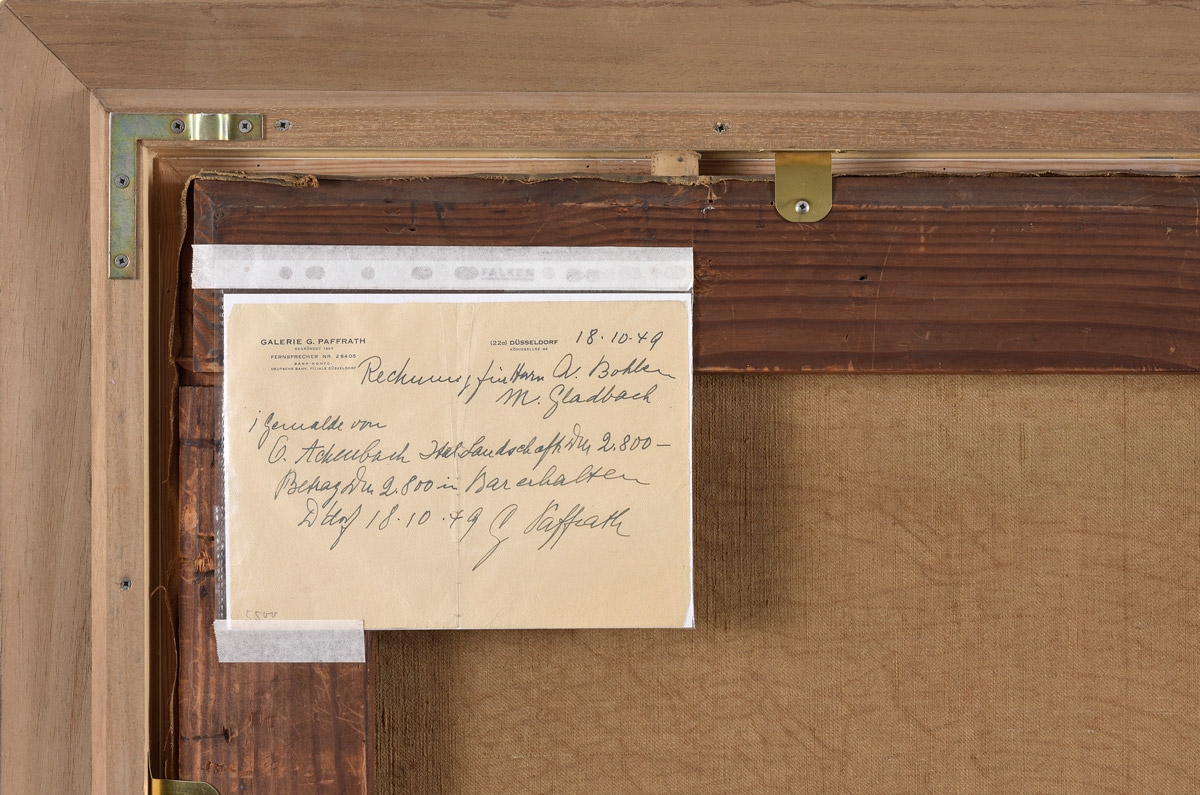 FALKEN
GALERIE G. PAFFRATH
GEGRÜNDET 1867
FERNSPRECHER NR. 28405
BANK-KONTO:
DEUTSCHE BANK, FILIALE DÜSSELDORF
(22a) DÜSSELDORF 18.10.49
KÖNIGSALLEE 46
Rechnung für Herrn A. Bohlen
M. Gladbach
1 Gemälde von
O. Achenbach Ital. Landschaft DM 2.800—
Betrag DM 2.800 in Bar erhalten
Ddorf 18.10.49 G. Paffrath
5500